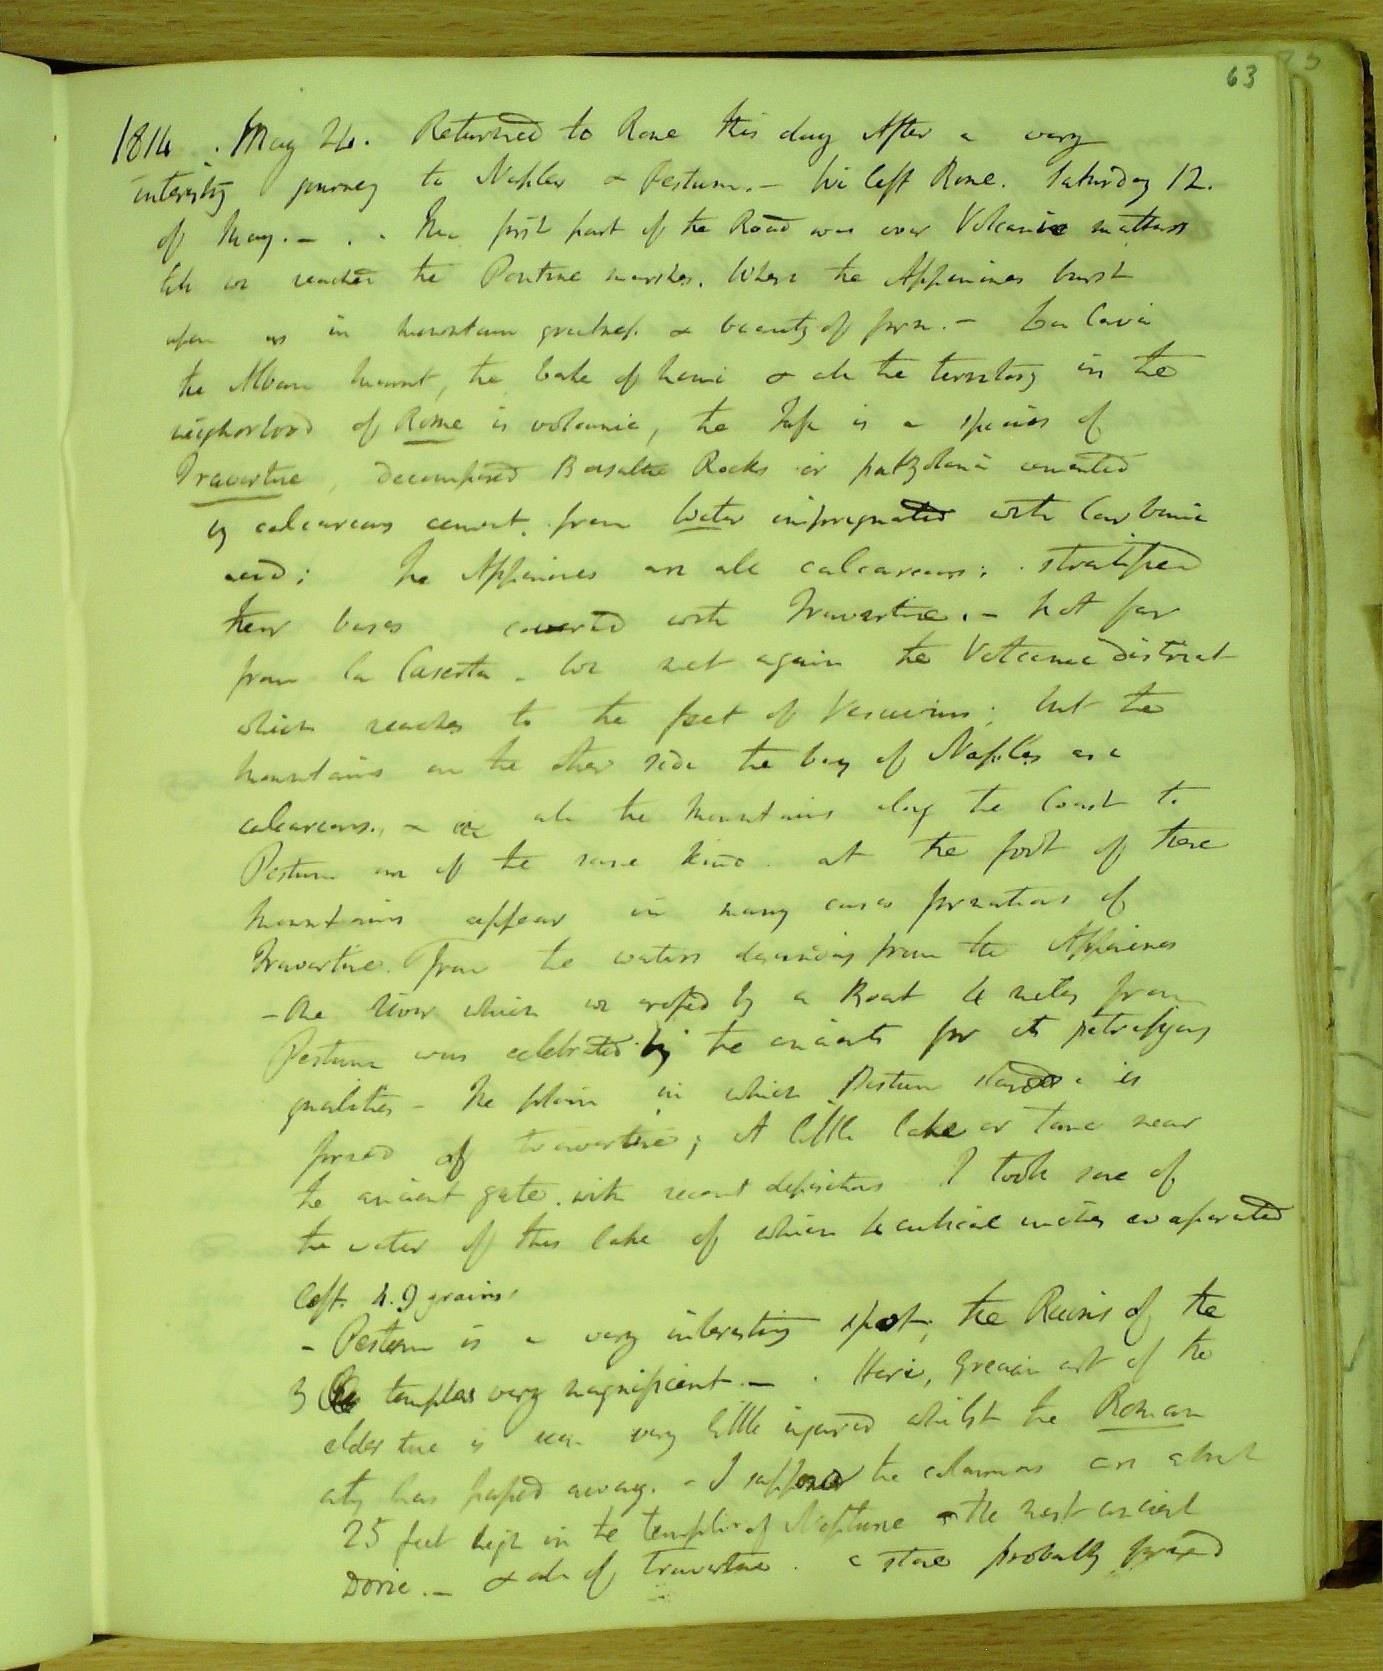 63
1814 . May 24. Returned to Rome this day After a very
interesting journey to Naples & Pestum. – We left Rome. Saturday 12.
of May. – . . The first part of the Road was over Volcanic matters
till we reached the Pontine marshes. Where the Appenines burst
upon us in mountain greatness & beauty of form. – La Cavia
the Alban mount, the Lake of Nemi & all the territory in the
neighborhood of Rome is volcanic, the Tufa is a species of
Travertine, decomposed Basaltic Rocks or putzolana cemented
by calcareous cement. from Water impregnated with Carbonic
acid; The Appenines are all calcareous; . stratified
their bases covered with Travertine. – Not far
from La Caserta – We met again the Volcanic district
which reaches to the feet of Vesuvius; but the
mountains on the other side the bay of Naples are
calcareous., & all the mountains along the Coast to
Pestum are of the same kind. at the foot of these
mountains appear in many cases formations of
Travertine. from the waters descending from the Appenines
– The River which we crossed by a Boat 4 miles from
Pestum was celebrated by the ancients for its petrifying
qualities – The plain in which Pestum stands is
formed of travertine; A little lake or tarn near
the ancient gate. with recent depositions I took some of
the water of this lake of which 4 cubical inches evaporated
left. 4.9 grains.
– Pestum is a very interesting spot; the Ruins of the
3 temples very magnificent. – . Here, Grecian art of the
elder time is seen very little injured whilst the Roman
city has passed away. – I suppose the columns are about
25 feet high in the temple of Neptune – the most ancient
Doric. – & all of travertine . a stone probably formed